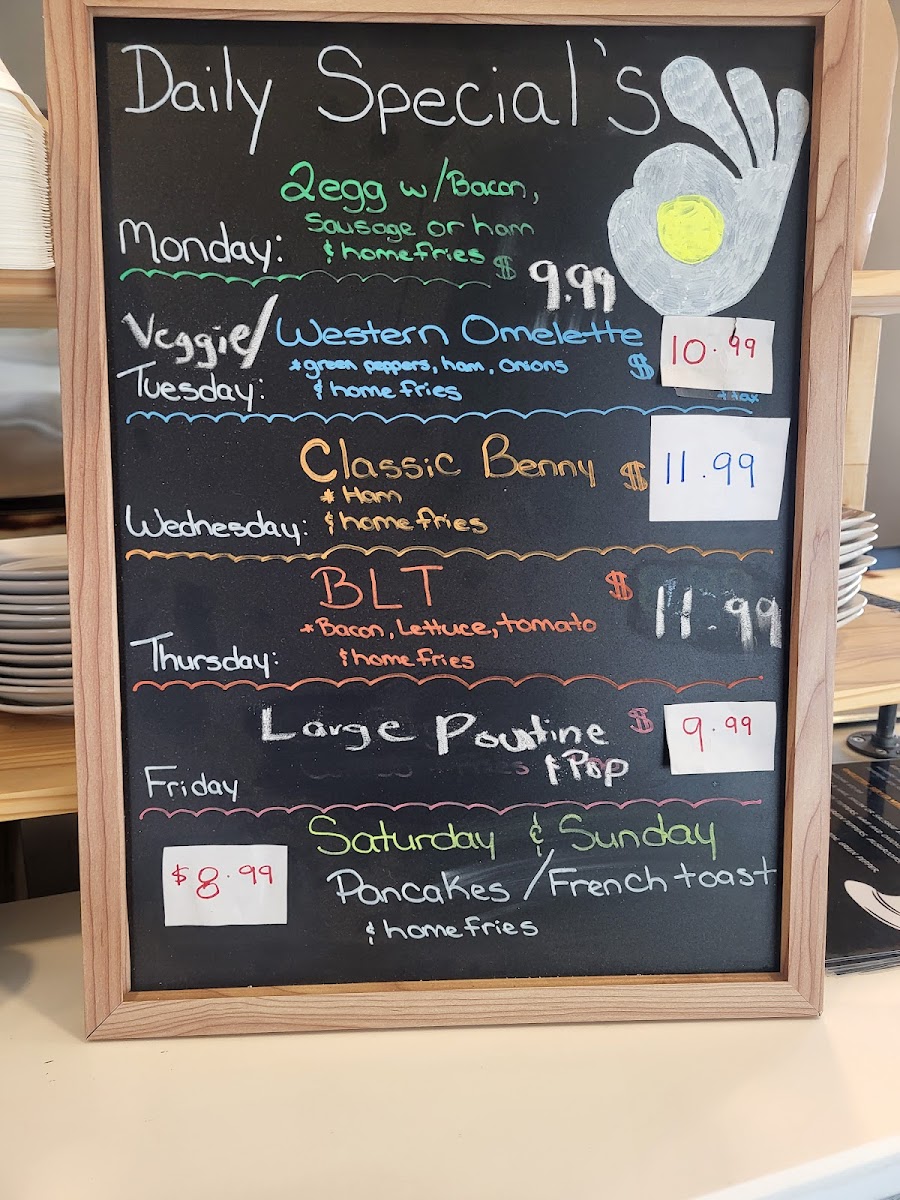 Daily Special's
2egg w/Bacon,
Sausage or ham
Monday: & homefries $ 9.99
Veggie/Western Omelette
*green peppers, ham, onions $ 10.99
Tuesday: & home fries + tax
Classic Benny $ 11.99
* Ham
Wednesday: & homefries
BLT $ 11.99
*Bacon, Lettuce, tomato
Thursday: & homefries
Large Poutine $ 9.99
& Pop
Friday
Saturday & Sunday
$8.99 Pancakes / French toast
& homefries